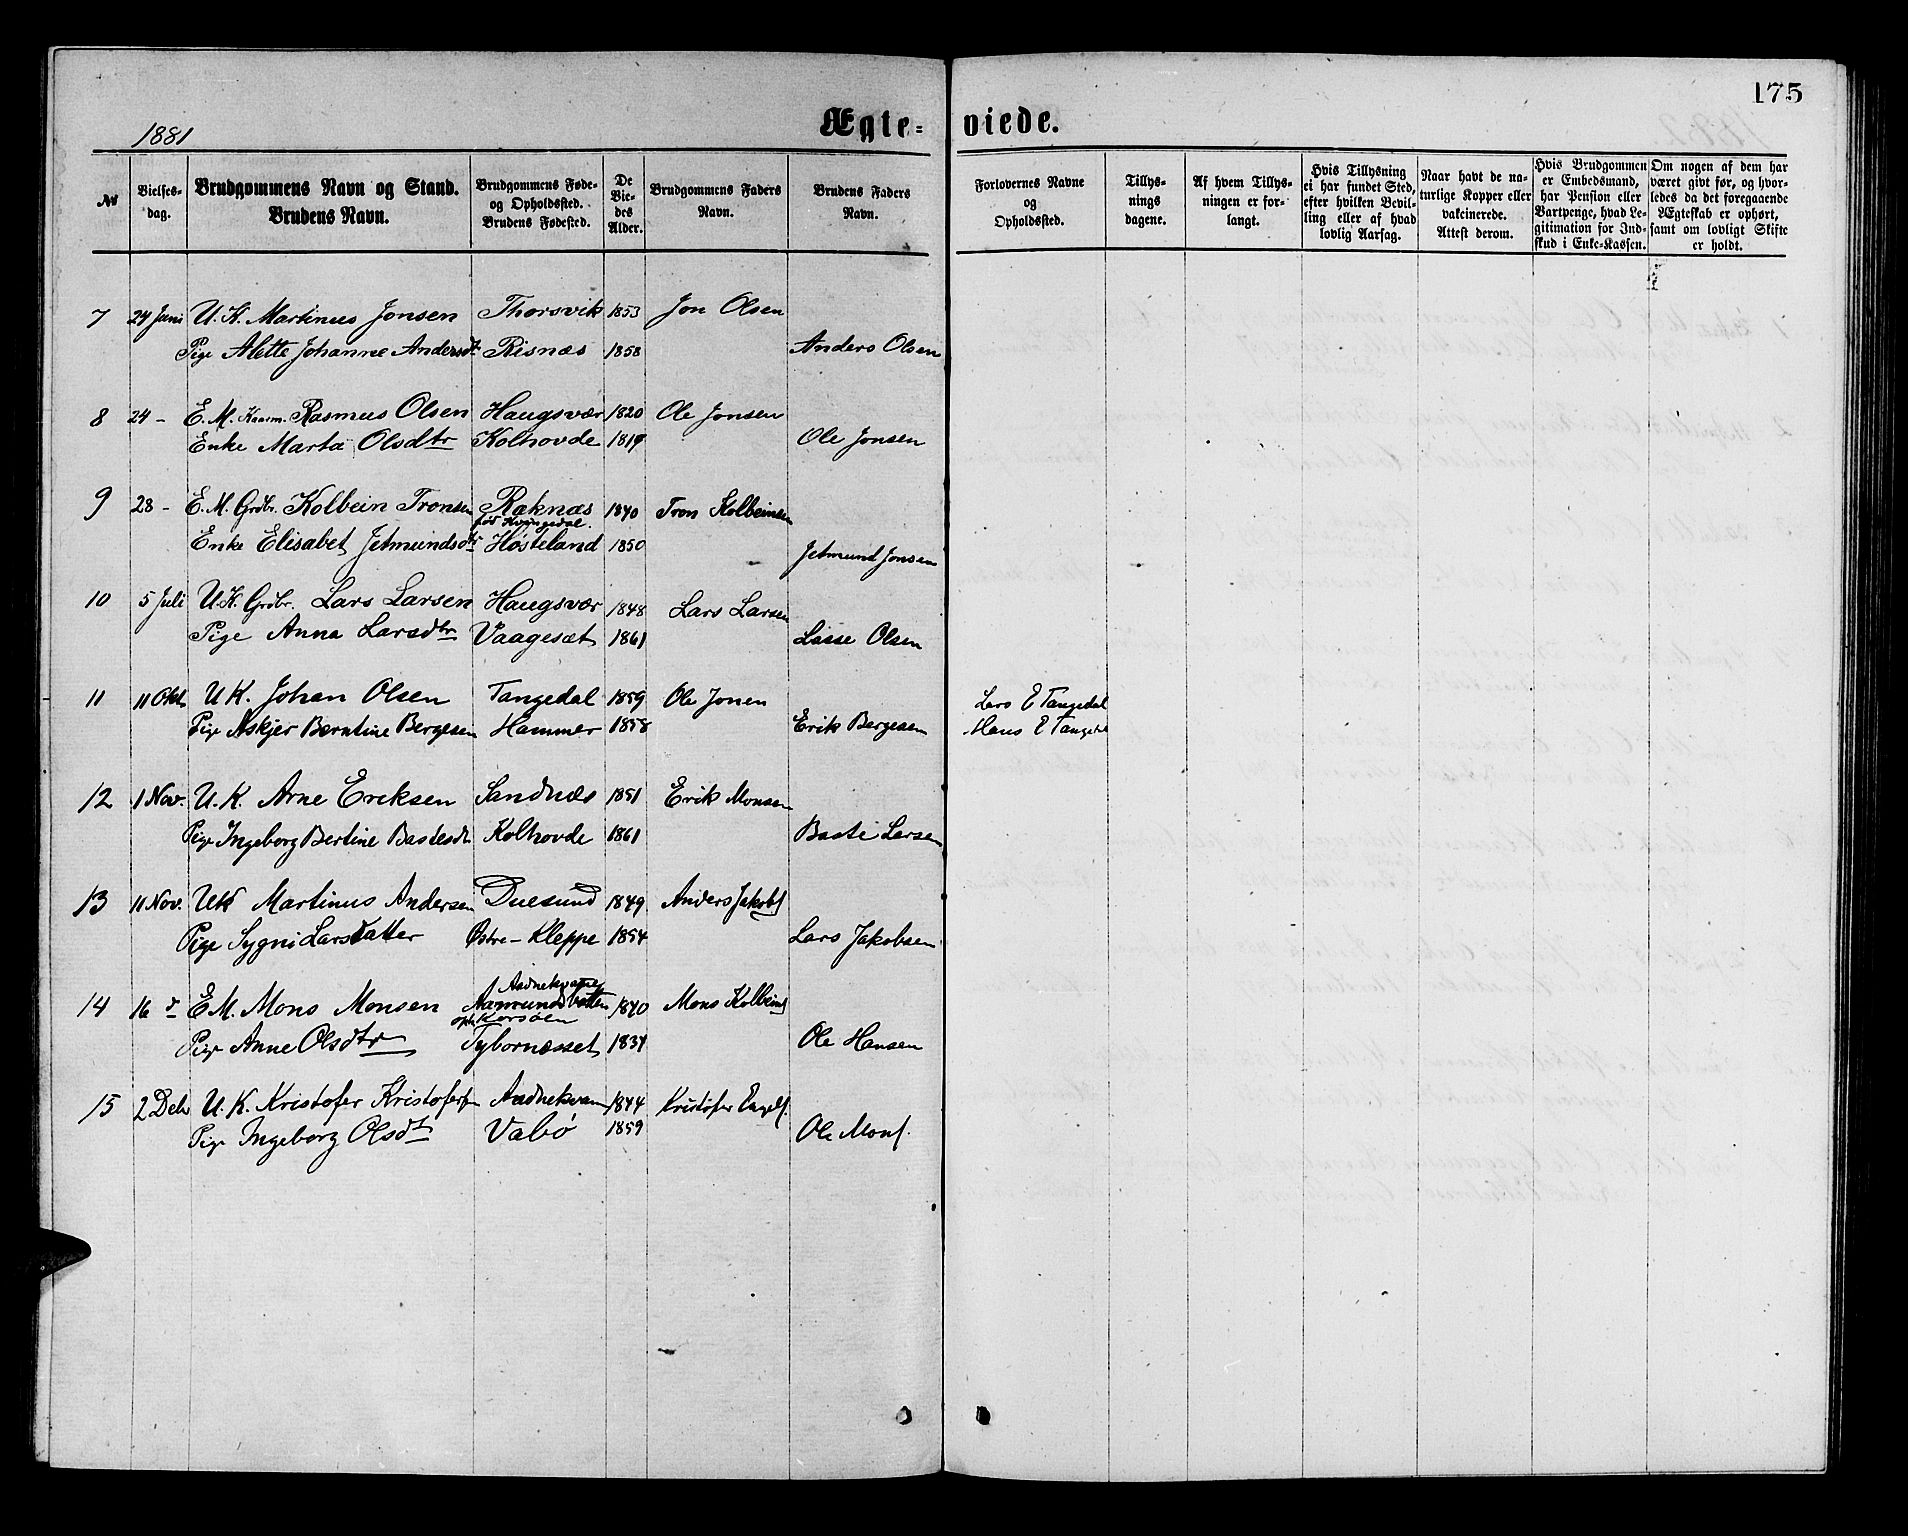 175
1881 Ægteviede.
№ | Vielsesdag. | Brudgommens Navn og Stand. Brudens Navn. | Brudgommens Føde- og Opholdssted. Brudens Fødested. | De Viedes Alder. | Brudgommens Faders Navn. | Brudens Faders Navn. | Forlovernes Navne og Opholdssted. | Tillysnings dagene. | Af hvem Tillysningen er forlangt. | Hvis Tillysning ei har fundet Sted, efter hvilken Bevilling eller af hvad lovlig Aarsag. | Naar havt de naturlige Kopper eller vakcinerede. Attest derom. | Hvis Brudgommen er Embedsmand, har Pension eller Vartpenge, hvad Legitimation for Indskud i Enke-Kassen. | Om nogen af dem har været givt før, og hvorledes da det foregaaende Ægteskab er ophørt, samt om lovligt Skifte er holdt.
7 24 Juni U. K. Martinus Jonsen Thorsvik 1853 Jon Olsen
Pige Alette Johanne Andersdt Risnæs 1858 Anders Olsen
8 24 - E. M. Kaarm. Rasmus Olsen Haugsvær 1820 Ole Jonsen
Enke Marta Olsdtr Kolhovde 1819 Ole Jonsen
9 28 - E. M. Grdbr. Kolbein Tronsen Raknæs 1840 Tron Kolbeinsen
født Kvingedal.
Enke Elisabet Jetmundsdtr Høsteland 1850 Jetmund Jonsen
10 5 Juli U. K. Grdbr. Lars Larsen Haugsvær 1848 Lars Larsen
Pige Anna Larsdtr Vaagesæt 1861 Lasse Olsen
11 11 Okt U K. Johan Olsen Tangedal 1859 Ole Jonen Lars E Tangedal
Pige Askjer Berntine Bergesen Hammer 1858 Erik Bergesen Hans E Tangedal
12 1 Nov. U. K. Arne Eriksen Sandnæs 1851 Erik Monsen
Pige Ingeborg Bertine Bastesdt Kolhovde 1861 Baste Larsen
13 11 Nov. UK Martinus Andersen Duesund 1849 Anders Jakobs
Pige Sygni Larsdatter Østre-Kleppe 1854 Lars Jakobsen
Aadnekvame
14 16 d E M. Mons Monsen Aamundbotten 1840 Mons Kolbeins
oph Korsöen
Pige Anne Olsdtr Tybornæsset 1834 Ole Hansen
15 2 Deb U. K. Kristofer Kristofersn Aadnekvam 1844 Kristofer Engels.
Pige Ingeborg Olsdt Vabø 1859 Ole Mons.